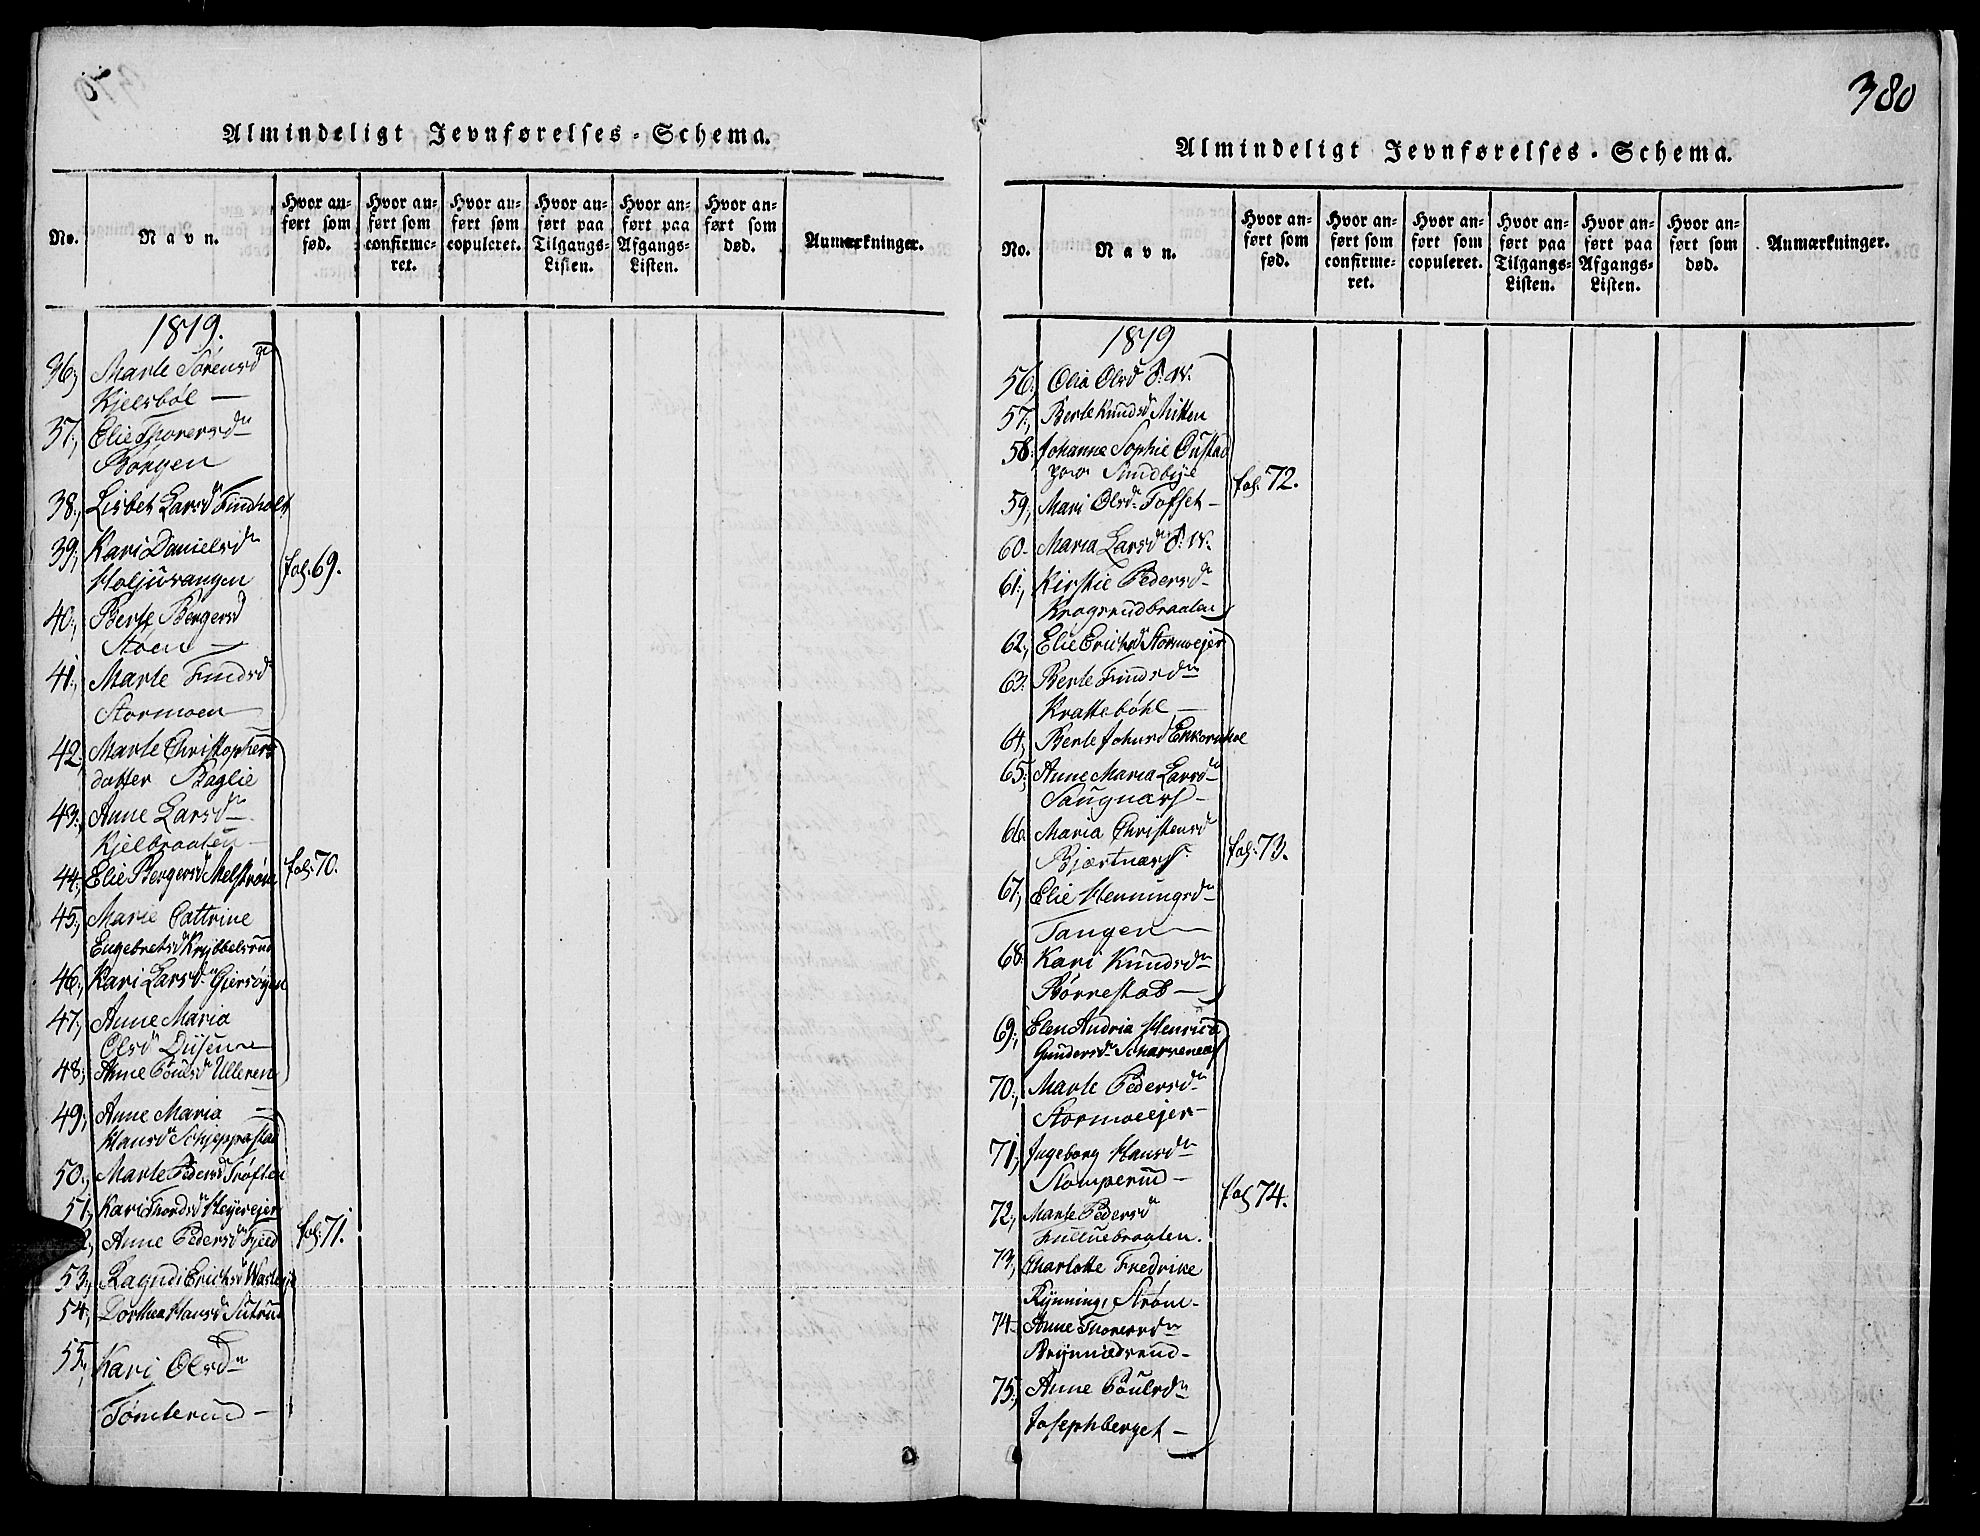 380
Almindeligt Jevnførelses-Schema.
No.
Navn.
Hvor an-
ført som
fød.
Hvor an-
ført som
confirme-
ret.
Hvor an-
ført som
copuleret.
Hvor an-
ført paa
Tilgangs-
Listen.
Hvor an-
ført paa
Afgangs-
Listen.
Hvor an-
ført som
død.
Anmærkninger.
1819.
36, Marte Sørensd
Kjelsbøl —
37, Elie Thorersdn
Borgen
38, Lisbet Larsdn Findholt
39, Kari Danielsdn
Holjuvangen
fol. 69.
40, Berte Bergersd
Støen —
41, Marte Findsdn
Stormoen —
42, Marte Christophers
datter Baglie
43, Anne Larsdn
Kjelbraaten —
44, Elie Bergersdn Melstrøm
fol. 70.
45, Marie Cattrine
Engebretsdn Krybbelsrud
46, Kari Larsdn Giersøyen
47, Anne Maria
Olsdn Dysen
48, Anne Poulsdn Ulleren
49, Anne Maria —
Hansdn Schjeppestad
50, Marte Pedersdn Trøften
51, Kari Thordsdn Heyerejer
2, Anne Pedersdn Fjeld
fol. 71.
53, Ragndi Erichsdn
54, Dorthea Hansdn
55, Kari Olsdn
Tømterud —
Almindeligt Jevnførelses-Schema.
No.
Navn.
Hvor an-
ført som
fød.
Hvor an-
ført som
confirme-
ret.
Hvor an-
ført som
copuleret.
Hvor an-
ført paa
Tilgangs-
Listen.
Hvor an-
ført paa
Afgangs-
Listen.
Hvor an-
ført som
død.
Anmærkninger.
1819
56, Olia Olsd
57, Berte Knudsd Mitten
58, Johanne Sophie
Sundbye
fol. 72.
59, Mari Olsdn Tofset —
60. Maria Larsdn
61, Kirstie Pedersdn
Krogsrudbraaten
62, Elie Erichsdn Stormoejer
63, Berte Findsdn
Krattebøhl —
64, Berte Johnsd Ekkornhol
65, Anne Maria Larsdn
Saugnæss —
66. Maria Christensd
Bjærtnæss.
fol. 73.
67, Elie Henningsdn
Tangen —
68. Kari Knudsdn
Børrestad —
69, Elen Andria Henrica
Gundersdn Scharnenæs
70, Marte Pedersdn
Stormoeejer —
71, Ingeborg Hansdn
Stomperud —
fol 74.
72, Marte Pedersdn
Fulluebraaten.
73, Charlotte Fredrike
Rynning, Strøm —
74 Anne Thorersdn
Brynnildsrud —
75, Anne Poulsdn
Josephberget —